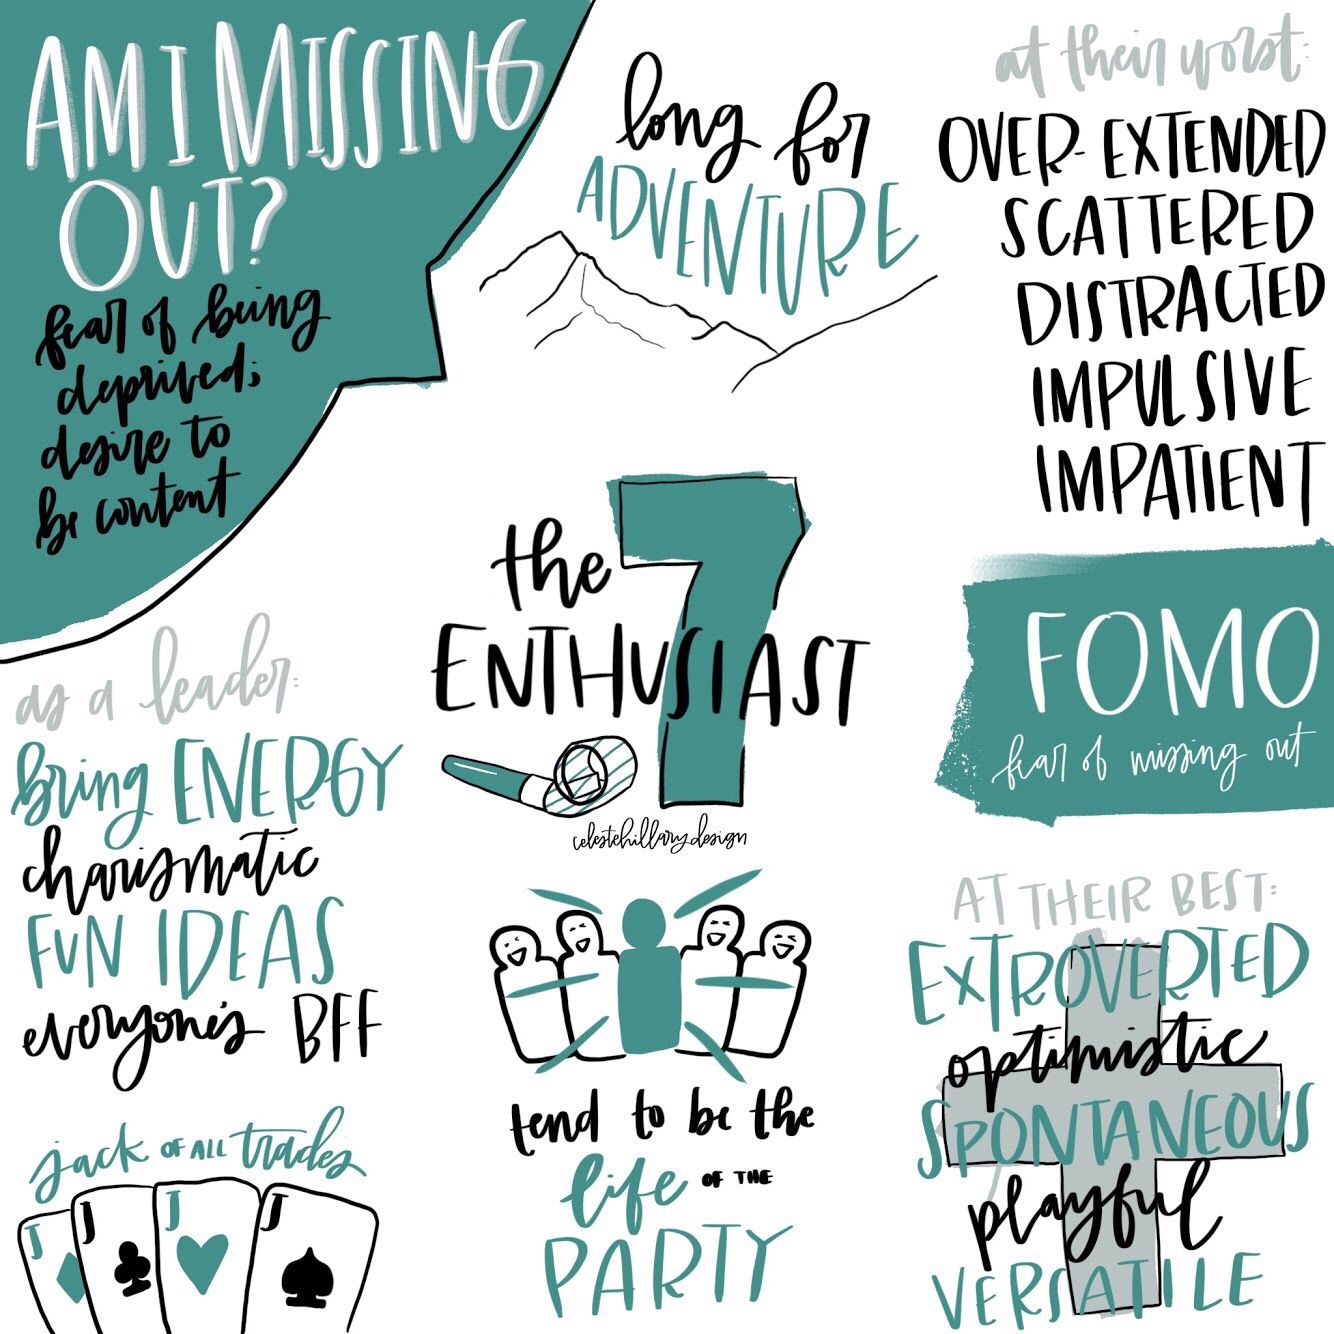 AM I MISSING
OUT?
fear of being
deprived;
desire to
be content
long for
ADVENTURE
at their worst:
OVER-EXTENDED
SCATTERED
DISTRACTED
IMPULSIVE
IMPATIENT
the
7
ENTHUSIAST
celestehillarydesign
FOMO
fear of missing out
as a leader:
bring ENERGY
charismatic
FUN IDEAS
everyone's BFF
jack OF ALL trades
J J J J
tend to be the
life OF THE
PARTY
AT THEIR BEST:
EXTROVERTED
optimistic
SPONTANEOUS
playful
VERSATILE